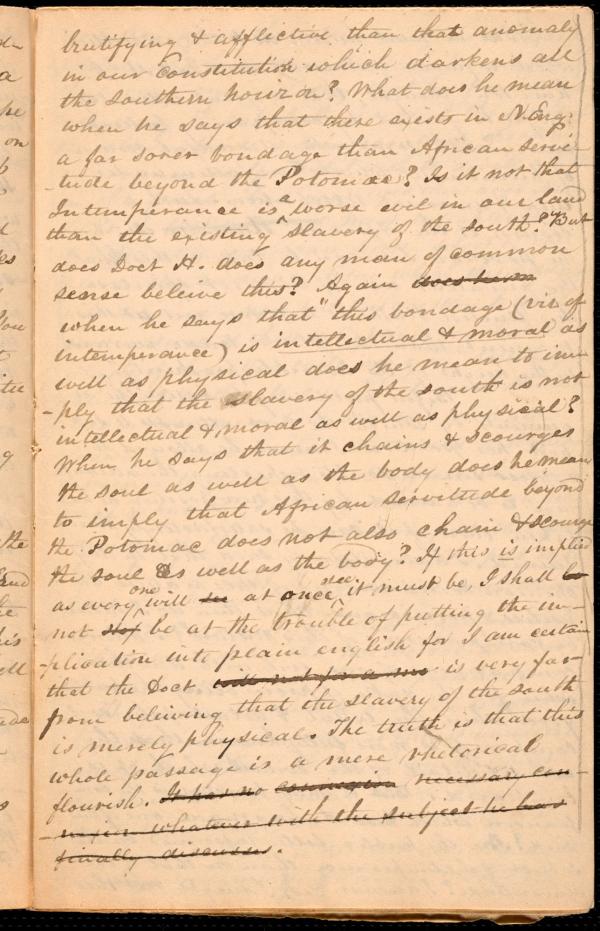 brutifying & afflictive than that anomaly
in our constitution which darkens all
the southern horizon? What does he mean
when he says that there exists in N. Eng.
a far sorer bondage than African servi-
tude beyond the Potomac? Is it not that
Intemperance is a worse evil in our land
than the existing slavery of the south? But
does Doct H. does any man of common
sense beleive this? Again does he m
when he says that "this bondage (viz of
intemperance) is intellectual & moral as
well as physical does he mean to im
-ply that the slavery of the south is not
intellectual & moral as well as physical?
When he says that it chains & scourges
the soul as well as the body does he mean
to imply that African servitude beyond
the Potomac does not also chain & scourge
the soul as well as the body? If this is implied
as every one will see at once, it must be, I shall
not be at the trouble of putting the im-
-plication into plain english for I am certain
that the Doct will not for a mo is very far
from beleiving that the slavery of the south
is merely physical. The truth is that this
whole passage is a mere rhetorical
flourish. It has no connexion necessary con-
nexion whatever with the subject he has
finally discusses.